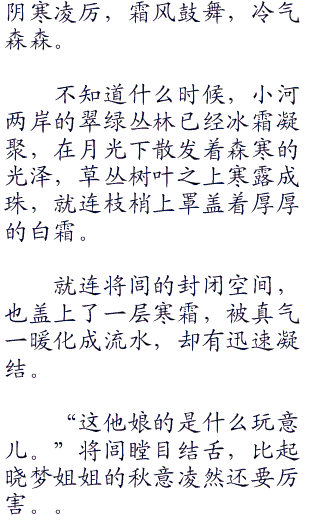 阴寒凌厉，霜风鼓舞，冷气
森森。
不知道什么时候，小河
两岸的翠绿丛林已经冰霜凝
聚，在月光下散发着森寒的
光泽，草丛树叶之上寒露成
珠，就连枝梢上罩盖着厚厚
的白霜。
就连将闾的封闭空间，
也盖上了一层寒霜，被真气
一暖化成流水，却有迅速凝
结。
“这他娘的是什么玩意
儿。”将闾瞠目结舌，比起
晓梦姐姐的秋意凌然还要厉
害。。